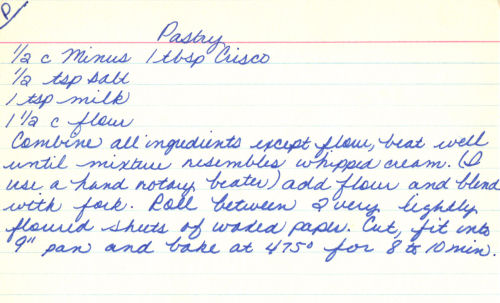 P
Pastry
1/2 c Minus 1 tbsp Crisco
1/2 tsp salt
1 tsp milk
1 1/2 c flour
Combine all ingredients except flour, beat well
until mixture resembles whipped cream. (I
use a hand rotary beater) add flour and blend
with fork. Roll between 2 very lightly
floured sheets of waxed paper. Cut, fit into
9" pan and bake at 475° for 8 to 10 min.